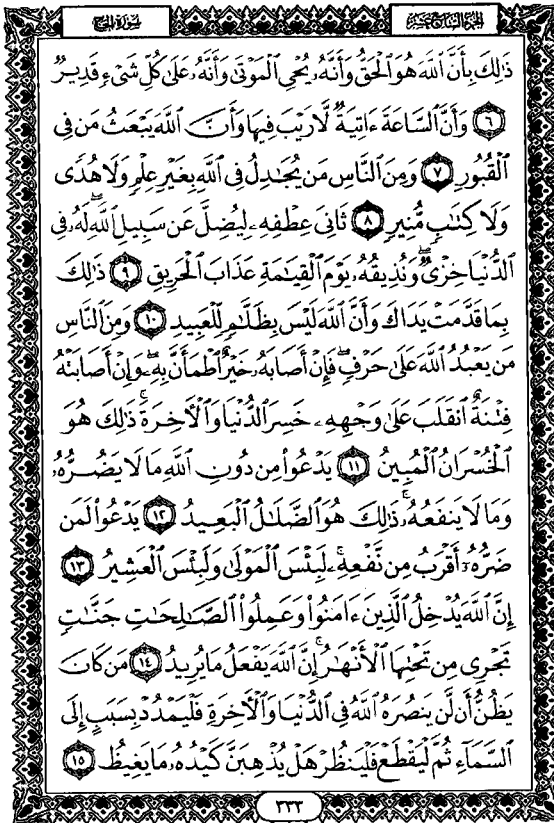 سورة الحج
الجزء السابع عشر
ذَٰلِكَ بِأَنَّ ٱللَّهَ هُوَ ٱلْحَقُّ وَأَنَّهُۥ يُحْىِ ٱلْمَوْتَىٰ وَأَنَّهُۥ عَلَىٰ كُلِّ شَىْءٍ قَدِيرٌ
٦ وَأَنَّ ٱلسَّاعَةَ ءَاتِيَةٌ لَّا رَيْبَ فِيهَا وَأَنَّ ٱللَّهَ يَبْعَثُ مَن فِى
ٱلْقُبُورِ ٧ وَمِنَ ٱلنَّاسِ مَن يُجَٰدِلُ فِى ٱللَّهِ بِغَيْرِ عِلْمٍ وَلَا هُدًى
وَلَا كِتَٰبٍ مُّنِيرٍ ٨ ثَانِىَ عِطْفِهِۦ لِيُضِلَّ عَن سَبِيلِ ٱللَّهِ ۖ لَهُۥ فِى
ٱلدُّنْيَا خِزْىٌ ۖ وَنُذِيقُهُۥ يَوْمَ ٱلْقِيَٰمَةِ عَذَابَ ٱلْحَرِيقِ ٩ ذَٰلِكَ
بِمَا قَدَّمَتْ يَدَاكَ وَأَنَّ ٱللَّهَ لَيْسَ بِظَلَّٰمٍ لِّلْعَبِيدِ ١٠ وَمِنَ ٱلنَّاسِ
مَن يَعْبُدُ ٱللَّهَ عَلَىٰ حَرْفٍ ۖ فَإِنْ أَصَابَهُۥ خَيْرٌ ٱطْمَأَنَّ بِهِۦ ۖ وَإِنْ أَصَابَتْهُ
فِتْنَةٌ ٱنقَلَبَ عَلَىٰ وَجْهِهِۦ خَسِرَ ٱلدُّنْيَا وَٱلْءَاخِرَةَ ۚ ذَٰلِكَ هُوَ
ٱلْخُسْرَانُ ٱلْمُبِينُ ١١ يَدْعُوا۟ مِن دُونِ ٱللَّهِ مَا لَا يَضُرُّهُۥ
وَمَا لَا يَنفَعُهُۥ ۚ ذَٰلِكَ هُوَ ٱلضَّلَٰلُ ٱلْبَعِيدُ ١٢ يَدْعُوا۟ لَمَن
ضَرُّهُۥٓ أَقْرَبُ مِن نَّفْعِهِۦ ۚ لَبِئْسَ ٱلْمَوْلَىٰ وَلَبِئْسَ ٱلْعَشِيرُ ١٣
إِنَّ ٱللَّهَ يُدْخِلُ ٱلَّذِينَ ءَامَنُوا۟ وَعَمِلُوا۟ ٱلصَّٰلِحَٰتِ جَنَّٰتٍ
تَجْرِى مِن تَحْتِهَا ٱلْأَنْهَٰرُ ۚ إِنَّ ٱللَّهَ يَفْعَلُ مَا يُرِيدُ ١٤ مَن كَانَ
يَظُنُّ أَن لَّن يَنصُرَهُ ٱللَّهُ فِى ٱلدُّنْيَا وَٱلْءَاخِرَةِ فَلْيَمْدُدْ بِسَبَبٍ إِلَى
ٱلسَّمَآءِ ثُمَّ لْيَقْطَعْ فَلْيَنظُرْ هَلْ يُذْهِبَنَّ كَيْدُهُۥ مَا يَغِيظُ ١٥
٣٣٣